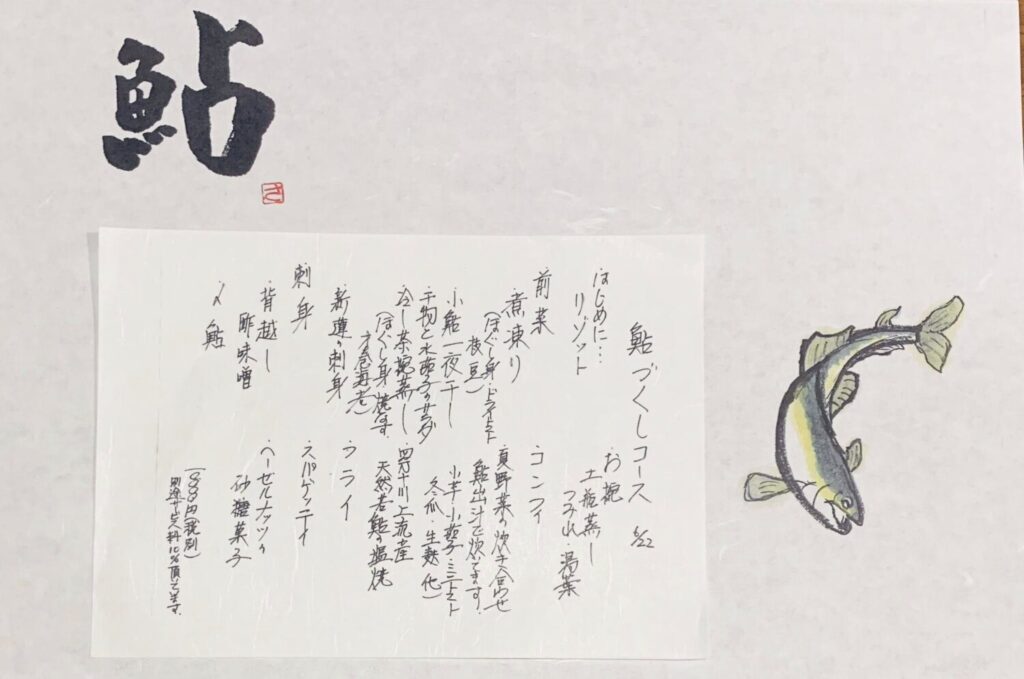 鮎
鮎づくしコース 6/22
はじめに…
リゾット
前菜
・煮凍り
(ほぐし身・ドライトマト
枝豆)
・小鮎一夜干し
干物と水茄子のサラダ
・冷し茶碗蒸し
(ほぐし身・焼なす
・新蓮の刺身
刺身
・背越し
酢味噌
・〆鮎
・お椀
土瓶蒸し
つみれ・湯葉
・コンフィ
・夏野菜の炊き合わせ
鮎出汁で炊いてます。
小芋・小茄子・ミニトマト
冬瓜・生麩 他)
・四万十川上流産
天然若鮎の塩焼
・フライ
・スパゲッティ
・ヘーゼルナッツの
砂糖菓子
別途サービス料10%頂きます。